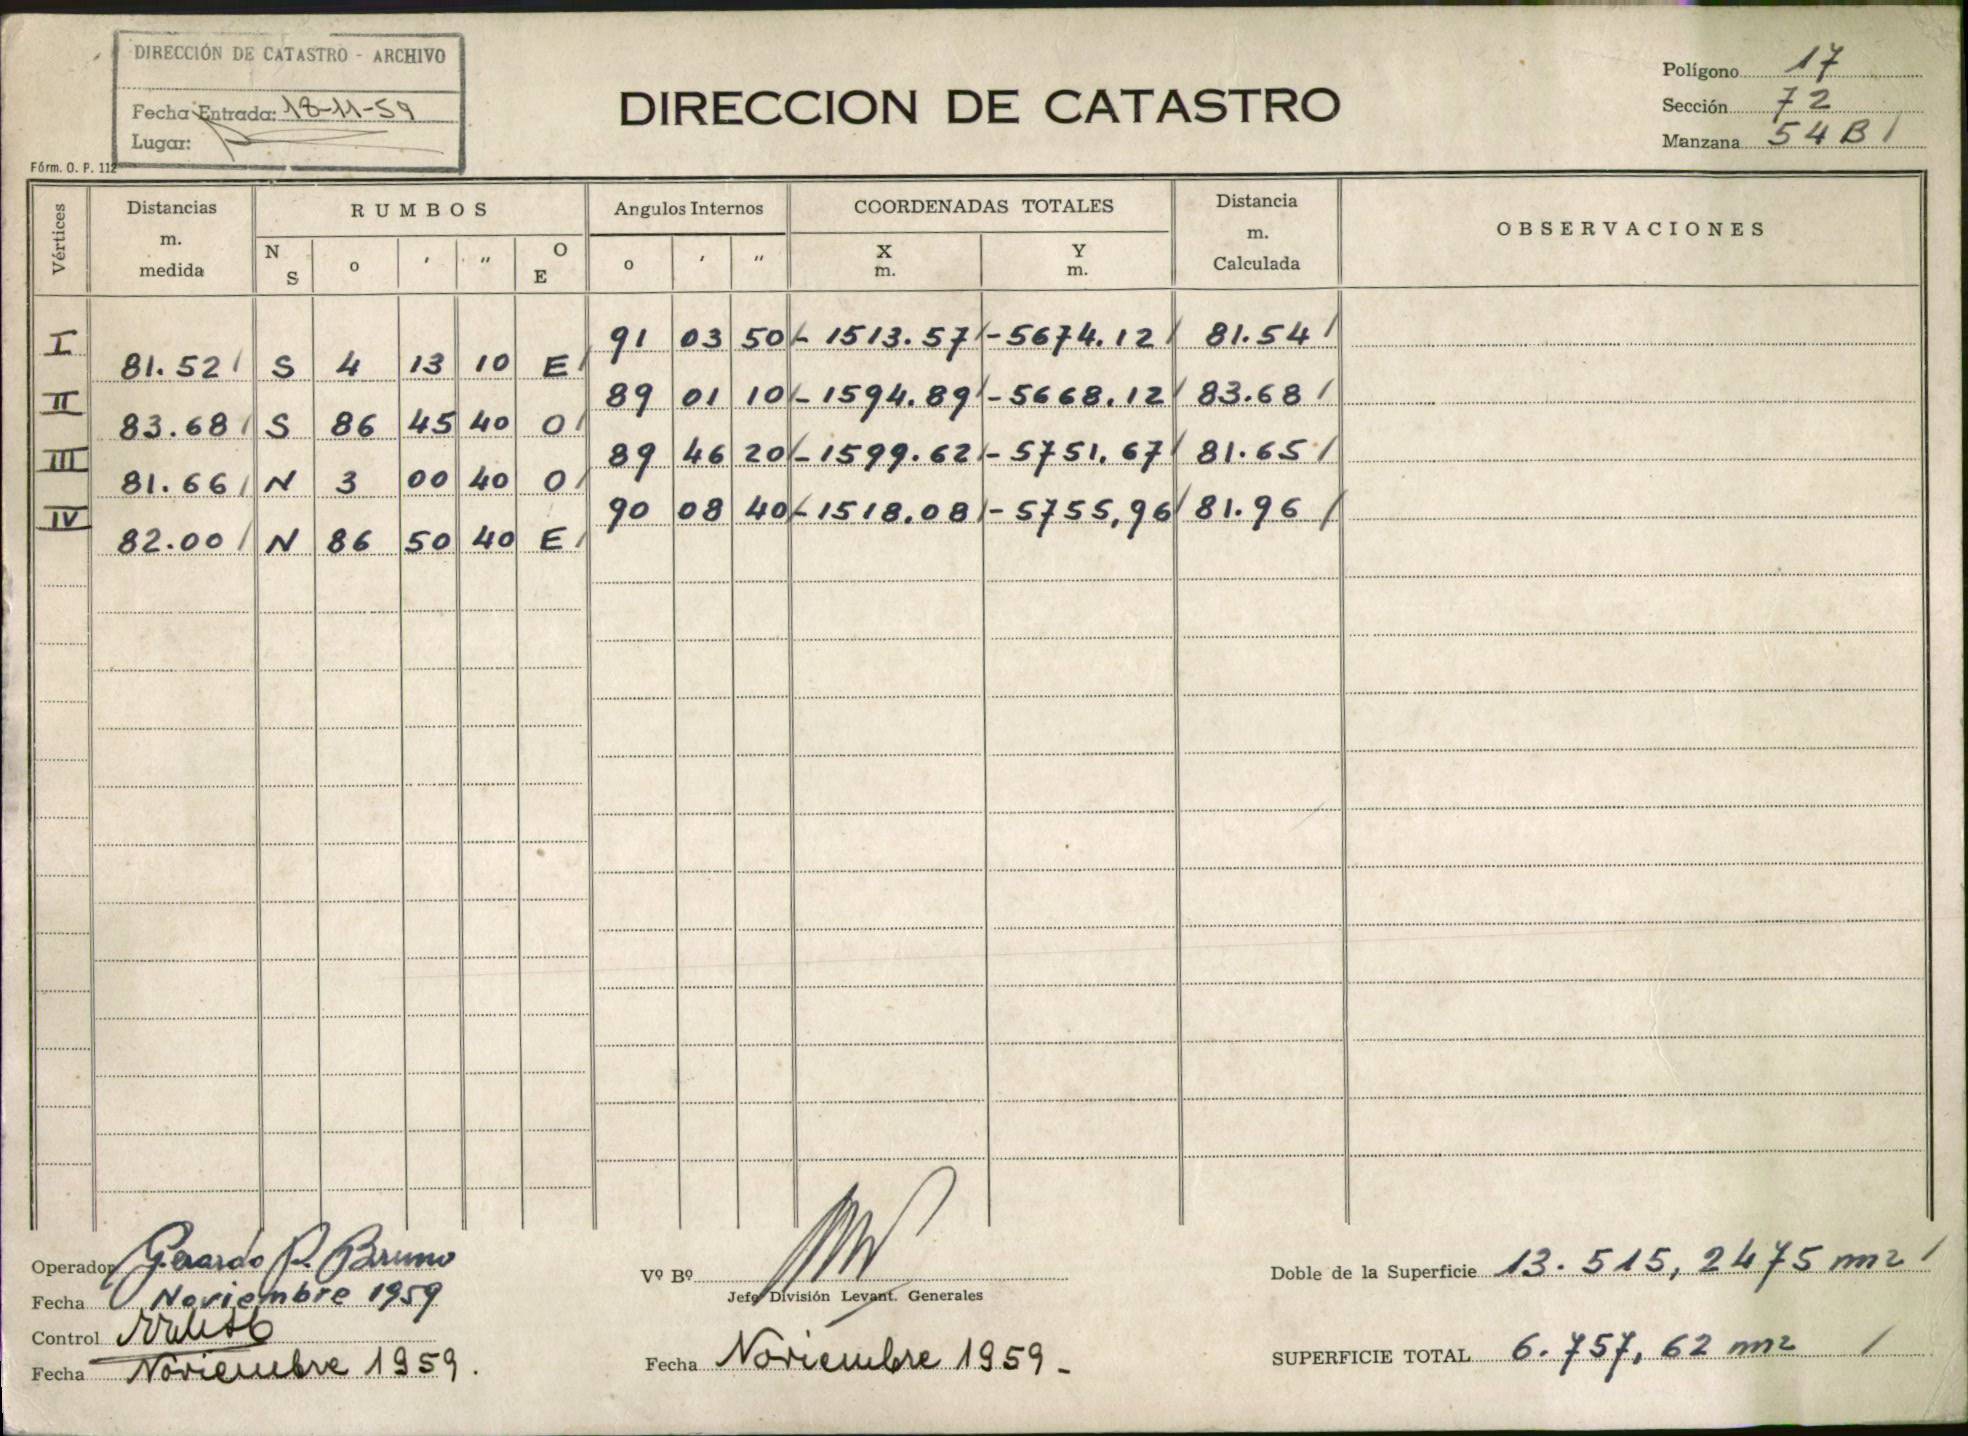 DIRECCIÓN DE CATASTRO - ARCHIVO
Fecha Entrada: 18-11-59
Lugar:
Fórm. O. P. 112
DIRECCION DE CATASTRO
Polígono 17
Sección 72
Manzana 54 B /
Vértices Distancias m. medida RUMBOS Angulos Internos COORDENADAS TOTALES Distancia m. Calculada OBSERVACIONES
N S o ' '' O E o ' '' X m. Y m.
I 91 03 50 /- 1513.57 /- 5674.12 / 81.54 /
81.52 / S 4 13 10 E /
II 89 01 10 /- 1594.89 /- 5668.12 / 83.68 /
83.68 / S 86 45 40 O /
III 89 46 20 /- 1599.62 /- 5751.67 / 81.65 /
81.66 / N 3 00 40 O /
IV 90 08 40 /- 1518.08 /- 5755,96 / 81.96 /
82.00 / N 86 50 40 E /
Operador Gerardo P. Bruno
Fecha Noviembre 1959
Control
Fecha Noviembre 1959.
Vº Bº
Jefe División Levant. Generales
Fecha Noviembre 1959 -
Doble de la Superficie 13.515,2475 m2 /
SUPERFICIE TOTAL 6.757,62 m2 /